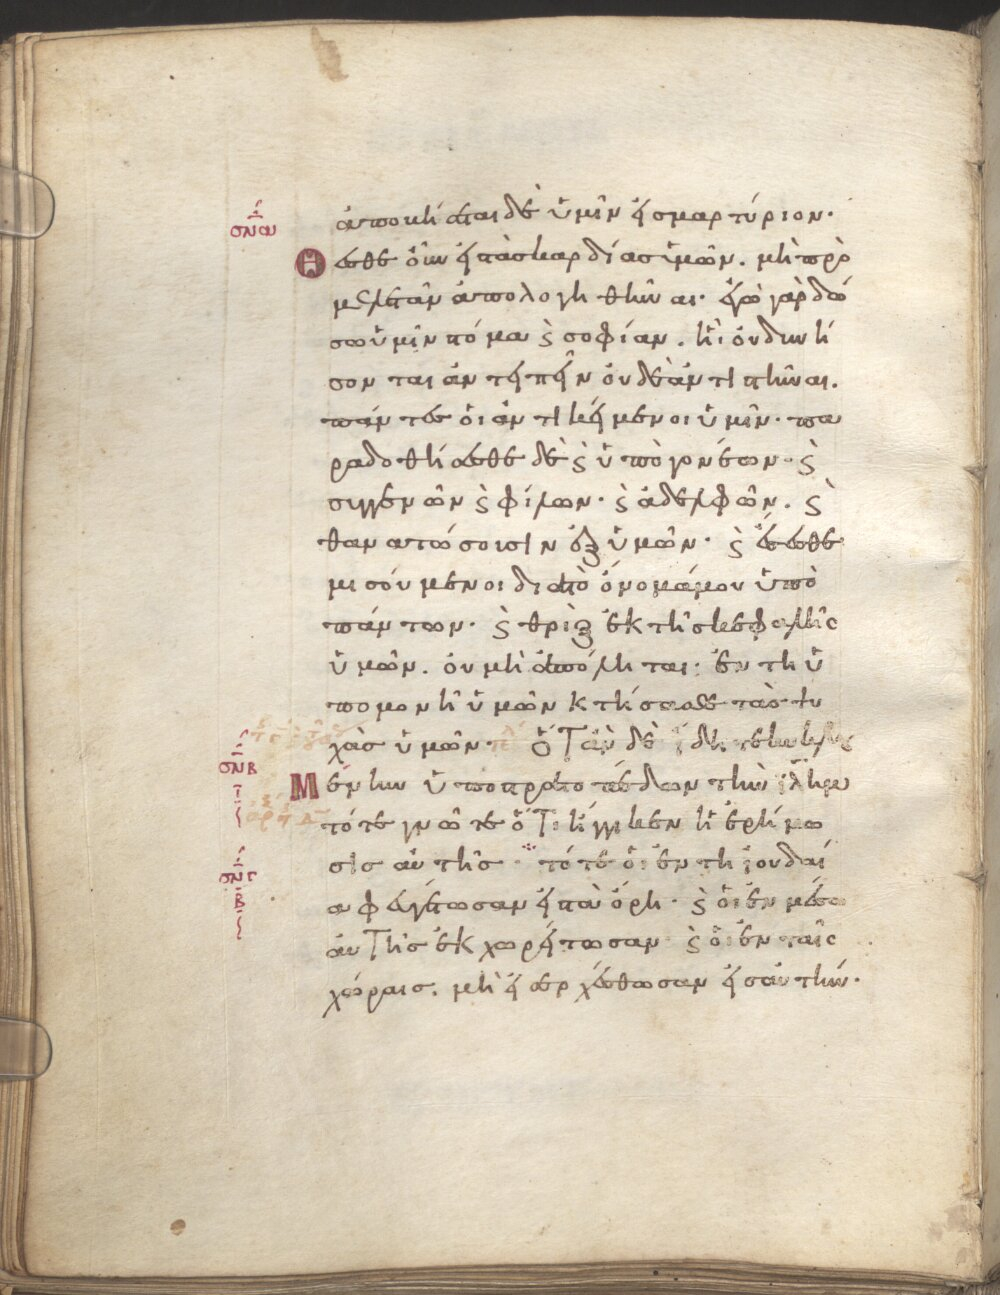 σνα
ἀποβήσεται δὲ ὑμῖν εἰς μαρτύριον·
Θέσθε οὖν εἰς τὰς καρδίας ὑμῶν. μὴ προ
μελετᾶν ἀπολογηθῆναι· ἐγὼ γὰρ δώ
σω ὑμῖν στόμα ϛ σοφίαν. ᾗ οὐ δυνή
σονται ἀντειπεῖν οὐδὲ ἀντιστῆναι.
πάντες οἱ ἀντικείμενοι ὑμῖν· πα
ραδοθήσεσθε δὲ ϛ ὑπὸ γονέων· ϛ
συγγενῶν ϛ φίλων· ϛ ἀδελφῶν. ϛ
θανατώσουσιν ἐξ ὑμῶν· ϛ ἔσεσθε
μισούμενοι διὰ τὸ ὄνομά μου ὑπὸ
πάντων· ϛ θρὶξ ἐκ τῆς κεφαλῆς
ὑμῶν. οὐ μὴ ἀπόληται· ἐν τῇ ὑ
πομονῇ ὑμῶν κτήσασθε τὰς ψυ
χὰς ὑμῶν· ὅταν δὲ ἴδητε κυκλου
σνβ
ι
Μένην ὑπὸ στρατοπέδων τὴν ἰλημ
τότε γνῶτε ὅτι ἤγγικεν ἡ ἐρήμω
σις αὐτῆς· τότε οἱ ἐν τῇ ἰουδαί
σνγ
β
α φευγέτωσαν εἰς τὰ ὄρη· ϛ οἱ ἐν μέσω
αὐτῆς ἐκχωρείτωσαν· ϛ οἱ ἐν ταῖς
χώραις. μὴ εἰσερχέσθωσαν εἰς αὐτήν·